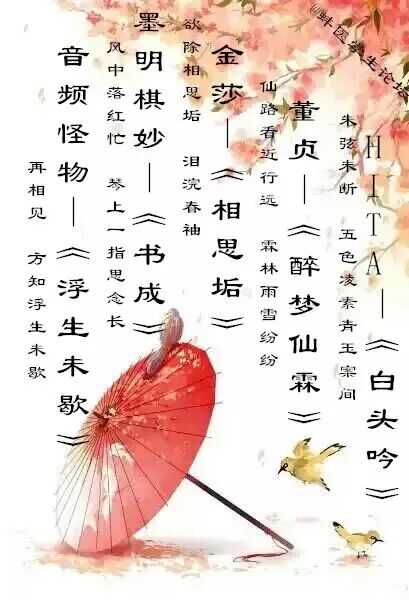 @蚌医学生论坛
HITA—《白头吟》
朱弦未断 五色凌素青玉案间
董贞—《醉梦仙霖》
仙路看近行远 霖林雨雪纷纷
金莎—《相思垢》
欲除相思垢 泪浣春袖
墨明棋妙—《书成》
风中落红忙 琴上一指思念长
音频怪物—《浮生未歇》
再相见 方知浮生未歇